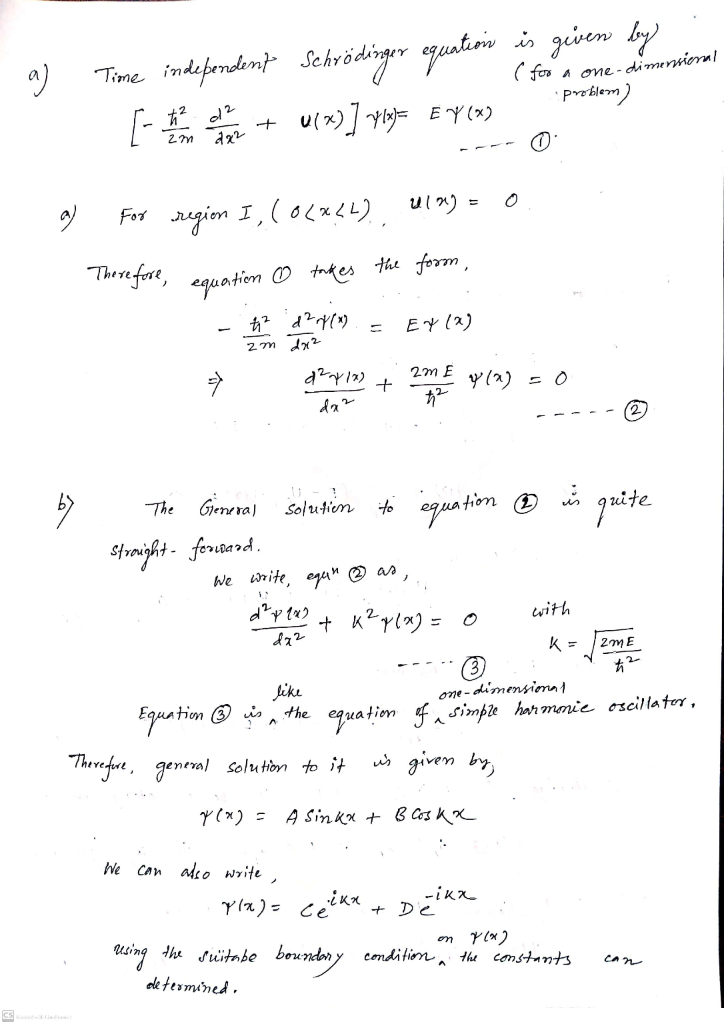 a) Time independent Schrödinger equation is given by
( for a one-dimensional problem)
[- ħ²/2m d²/dx² + U(x)] ψ(x)= E ψ(x)
---- ①.
a) For region I, ( 0<x<L) , U(x) = 0
Therefore, equation ① takes the form,
- ħ²/2m d²ψ(x)/dx² = E ψ(x)
⇒ d²ψ(x)/dx² + 2mE/ħ² ψ(x) = 0
----- ②
b) The General solution to equation ② is quite
straight-forward.
We write, equⁿ ② as,
d²ψ(x)/dx² + K² ψ(x) = 0 with
K = √2mE/ħ²
----- ③
Equation ③ is like the equation of one-dimensional simple harmonic oscillator.
Therefore, general solution to it is given by,
ψ(x) = A Sin kx + B Cos kx
We can also write,
ψ(x) = C e^ikx + D e^-ikx
Using the suitabe boundary condition on ψ(x) the constants can
determined.
CS